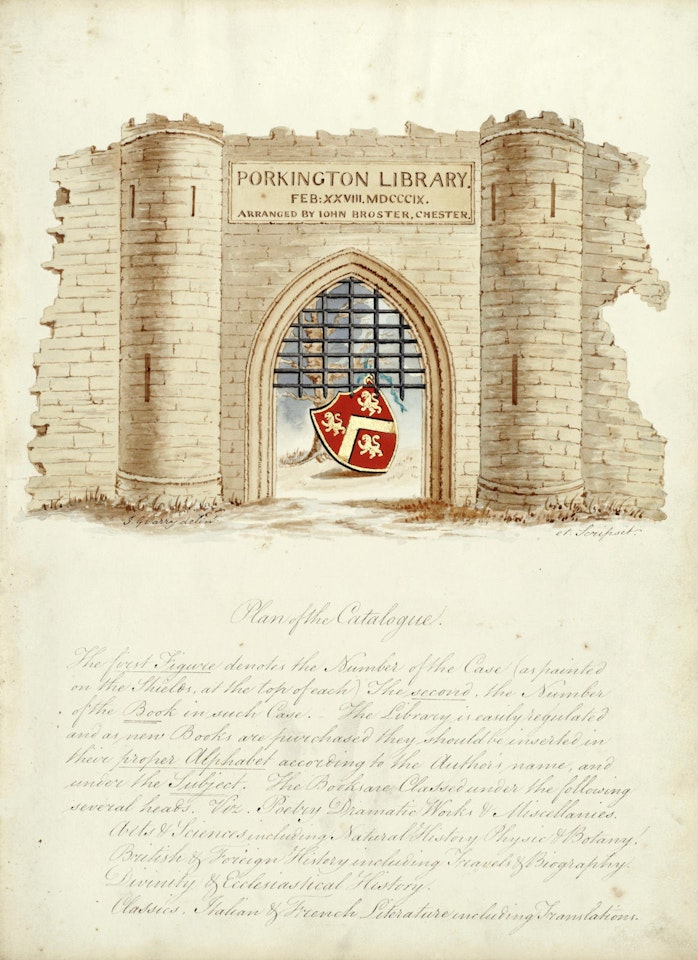 PORKINGTON LIBRARY.
FEB: XXVIII. MDCCCIX.
ARRANGED BY IOHN BROSTER, CHESTER.
J. Gvarry delint
et. Scripsit.
Plan of the Catalogue.
The first Figure denotes the Number of the Case (as painted
on the Shields, at the top of each) The second, the Number
of the Book in such Case. - The Library is easily regulated
and as new Books are purchased they should be inserted in
their proper Alphabet according to the Authors name, and
under the Subject. The Books are Classed under the following
several heads. Viz. Poetry Dramatic Works & Miscellanies.
Arts & Sciences including Natural History Physic & Botany.
British & Foreign History including Travels & Biography.
Divinity & Ecclesiastical History.
Classics. Italian & French Literature including Translations.